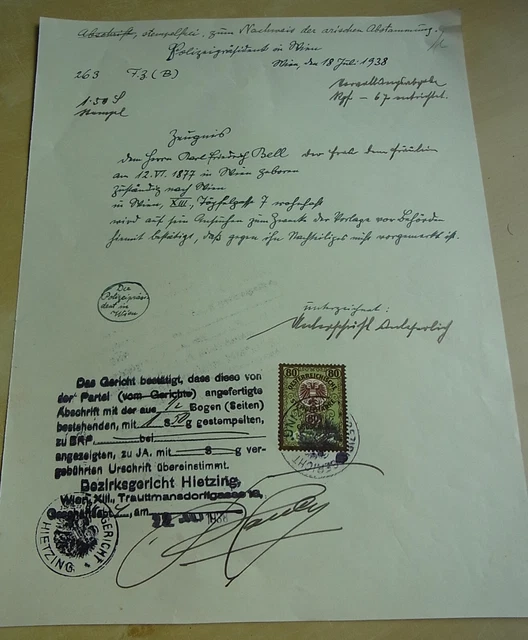 Abschrift, stempelfrei, zum Nachweis der arischen Abstammung.
Polizeipräsident in Wien
Wien, den 18 Juli 1938
263 F.Z. (B)
Verwaltungsabgabe
Rpf. — 67 entrichtet.
1·50 S
Stempel
Zeugnis
dem Herrn Karl Friedrich Bell der Frau dem Fräulein
am 12. VI. 1877 in Wien geboren
zuständig nach Wien
in Wien, XIII., 7 wohnhaft
wird auf sein Ansuchen zum Zwecke der Vorlage vor Behörden
hiemit bestätigt, daß gegen ihn Nachteiliges nicht vorgemerkt ist.
Der
Polizeipräsi-
dent in
Wien
unterzeichnet:
Unterschrift unleserlich
Das Gericht bestätigt, dass diese von
der Partei (vom Gerichte) angefertigte
Abschrift mit der aus 1/2 Bogen (Seiten)
bestehenden, mit 1 S 50 g gestempelten,
zu ERP bei
angezeigten, zu JA. mit S g ver-
gebührten Urschrift übereinstimmt.
Bezirksgericht Hietzing,
Wien, XIII., Trauttmansdorffgasse 18,
Geschäftsabt. am
80 80
HIETZING